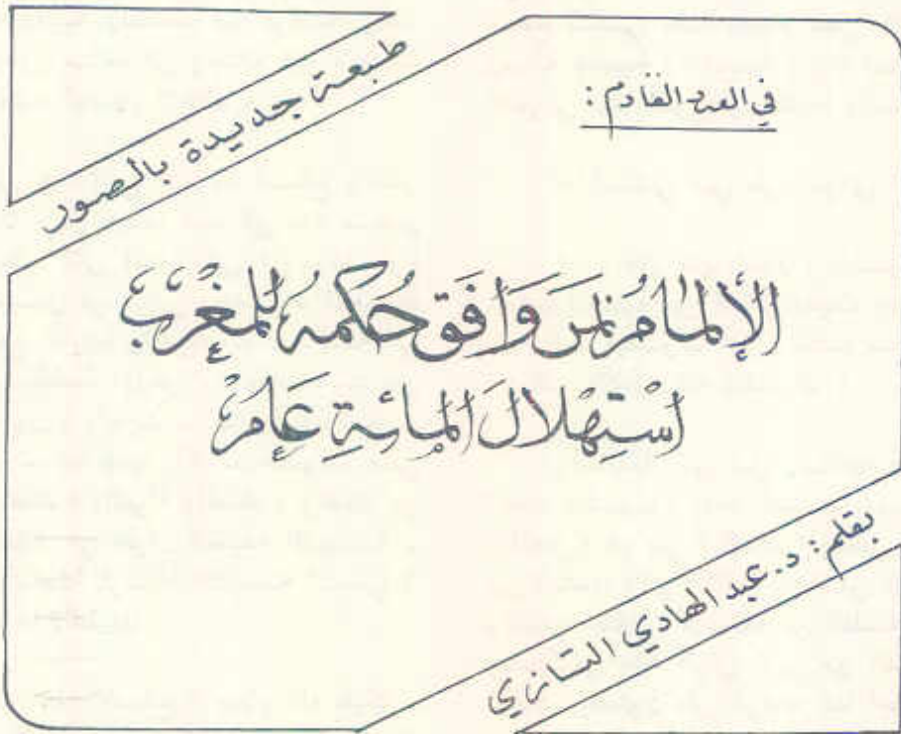 طبعة جديدة بالصور
في العدد القادم :
الإِلمَامُ بمَن وَافَقَ حُكمهُ للمغْربِ
اسْتِهْلالَ المائةِ عَام
بقلم : د. عبد الهادي التازي